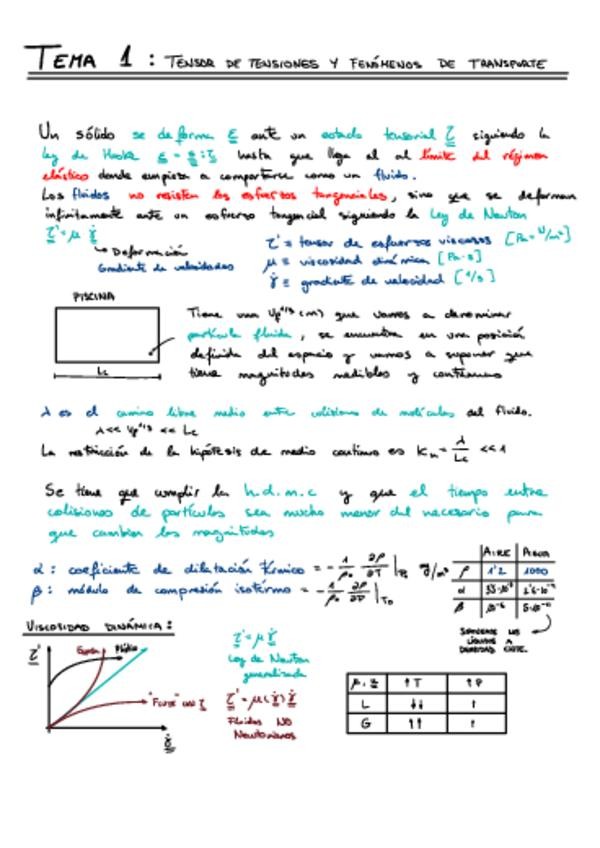 TEMA 1 : TENSOR DE TENSIONES Y FENÓMENOS DE TRANSPORTE
Un sólido se deforma ε ante un estado tensorial τ siguiendo la
ley de Hooke ε = : τ hasta que llega al límite del régimen
elástico donde empieza a comportarse como un fluido.
Los fluidos no resisten los esfuerzos tangenciales, sino que se deforman
infinitamente ante un esfuerzo tangencial siguiendo la ley de Newton
τ' = μ γ̇
Deformación
Gradiente de velocidades
τ' ≡ tensor de esfuerzos viscosos [Pa = N/m²]
μ ≡ viscosidad dinámica [Pa·s]
γ̇ ≡ gradiente de velocidad [1/s]
PISCINA
Lc
Tiene una Vp^1/3 (m) que vamos a denominar
partícula fluida, se encuentra en una posición
definida del espacio y vamos a suponer que
tiene magnitudes medibles y continuas
λ es el camino libre medio entre colisiones de moléculas del fluido.
λ << Vp^1/3 << Lc
La restricción de la hipótesis de medio continuo es Kn = λ/Lc << 1
Se tiene que cumplir la h.d.m.c y que el tiempo entre
colisiones de partículas sea mucho menor del necesario para
que cambien las magnitudes
α : coeficiente de dilatación térmico = - 1/ρ₀ ∂ρ/∂T |P₀
β : módulo de compresión isotérmo = - 1/ρ₀ ∂ρ/∂P |T₀
g/m³
AIRE AGUA
ρ 1'2 1000
α
β
VISCOSIDAD DINÁMICA :
τ'
Plástico
γ̇
τ' = μ γ̇
Ley de Newton
generalizada
τ' = μ(γ̇) γ̇
Fluidos NO
Newtonianos
↑T ↑P
L ↓↓ ↑
G ↑↑ ↑